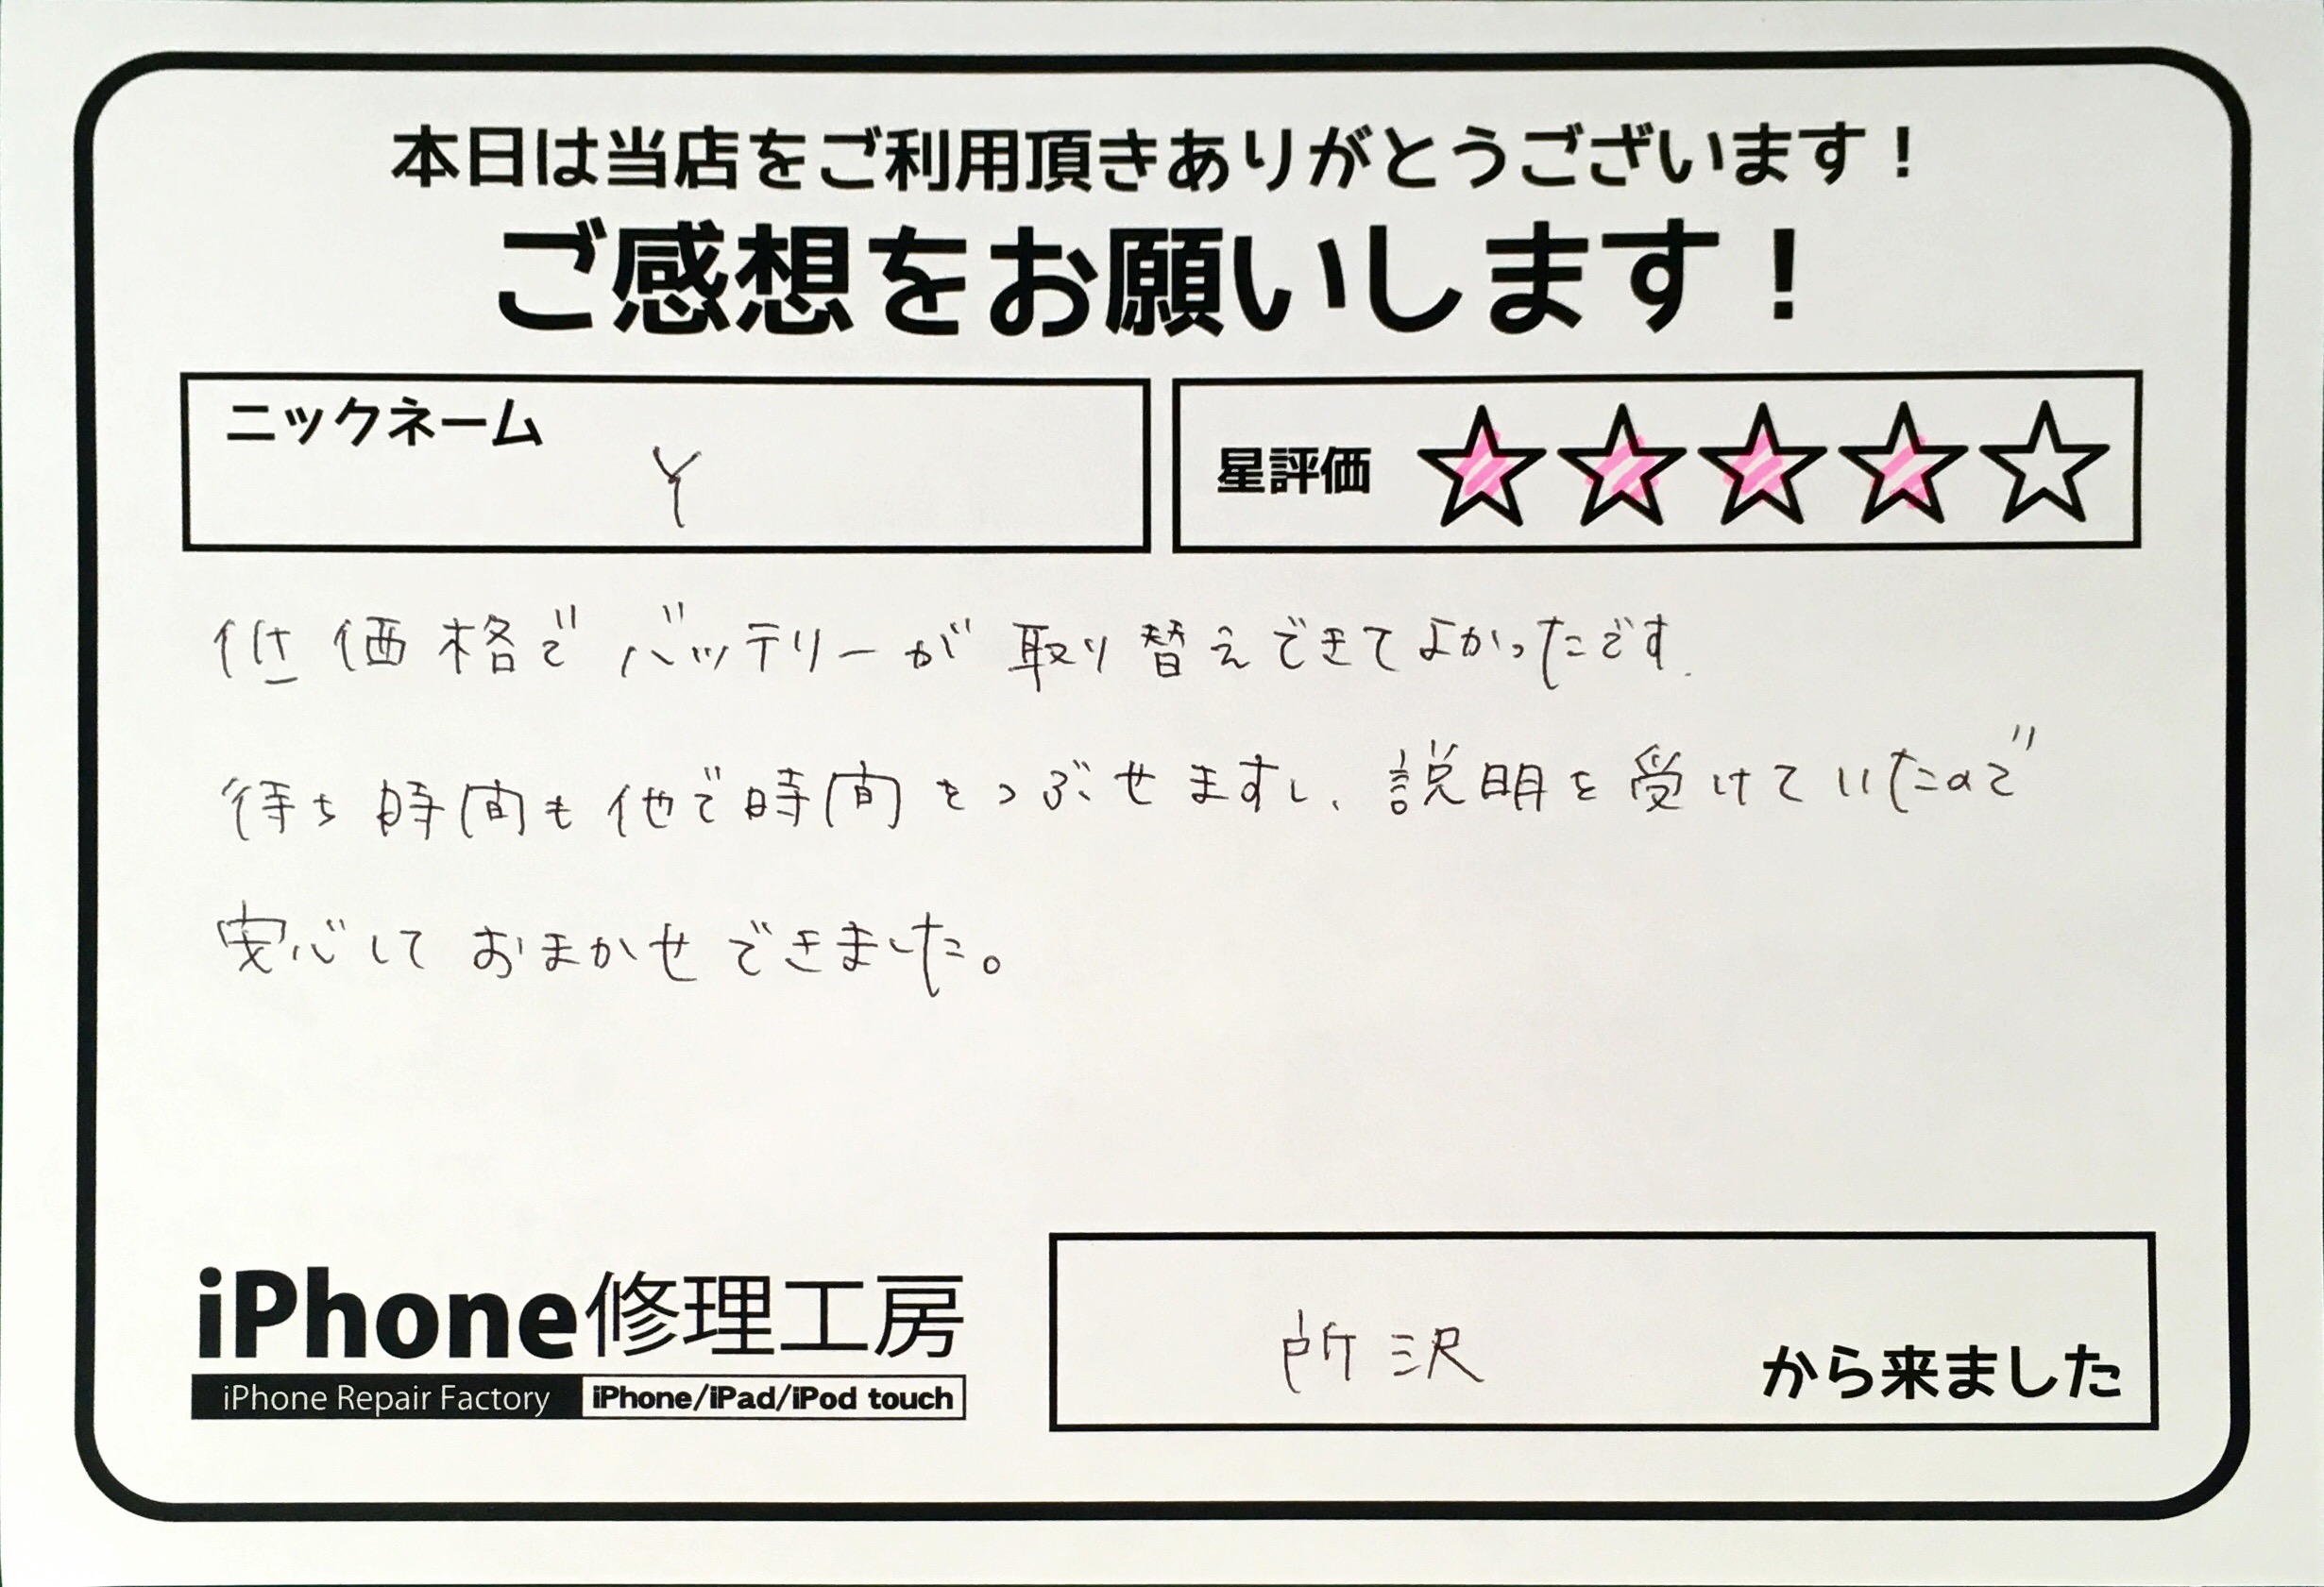 本日は当店をご利用頂きありがとうございます！
ご感想をお願いします！
ニックネーム
Y
星評価 ★★★★☆
低価格でバッテリーが取り替えできてよかったです.
待ち時間も他で時間をつぶせますし、説明を受けていたので
安心しておまかせできました。
iPhone修理工房
iPhone Repair Factory iPhone/iPad/iPod touch
所沢 から来ました